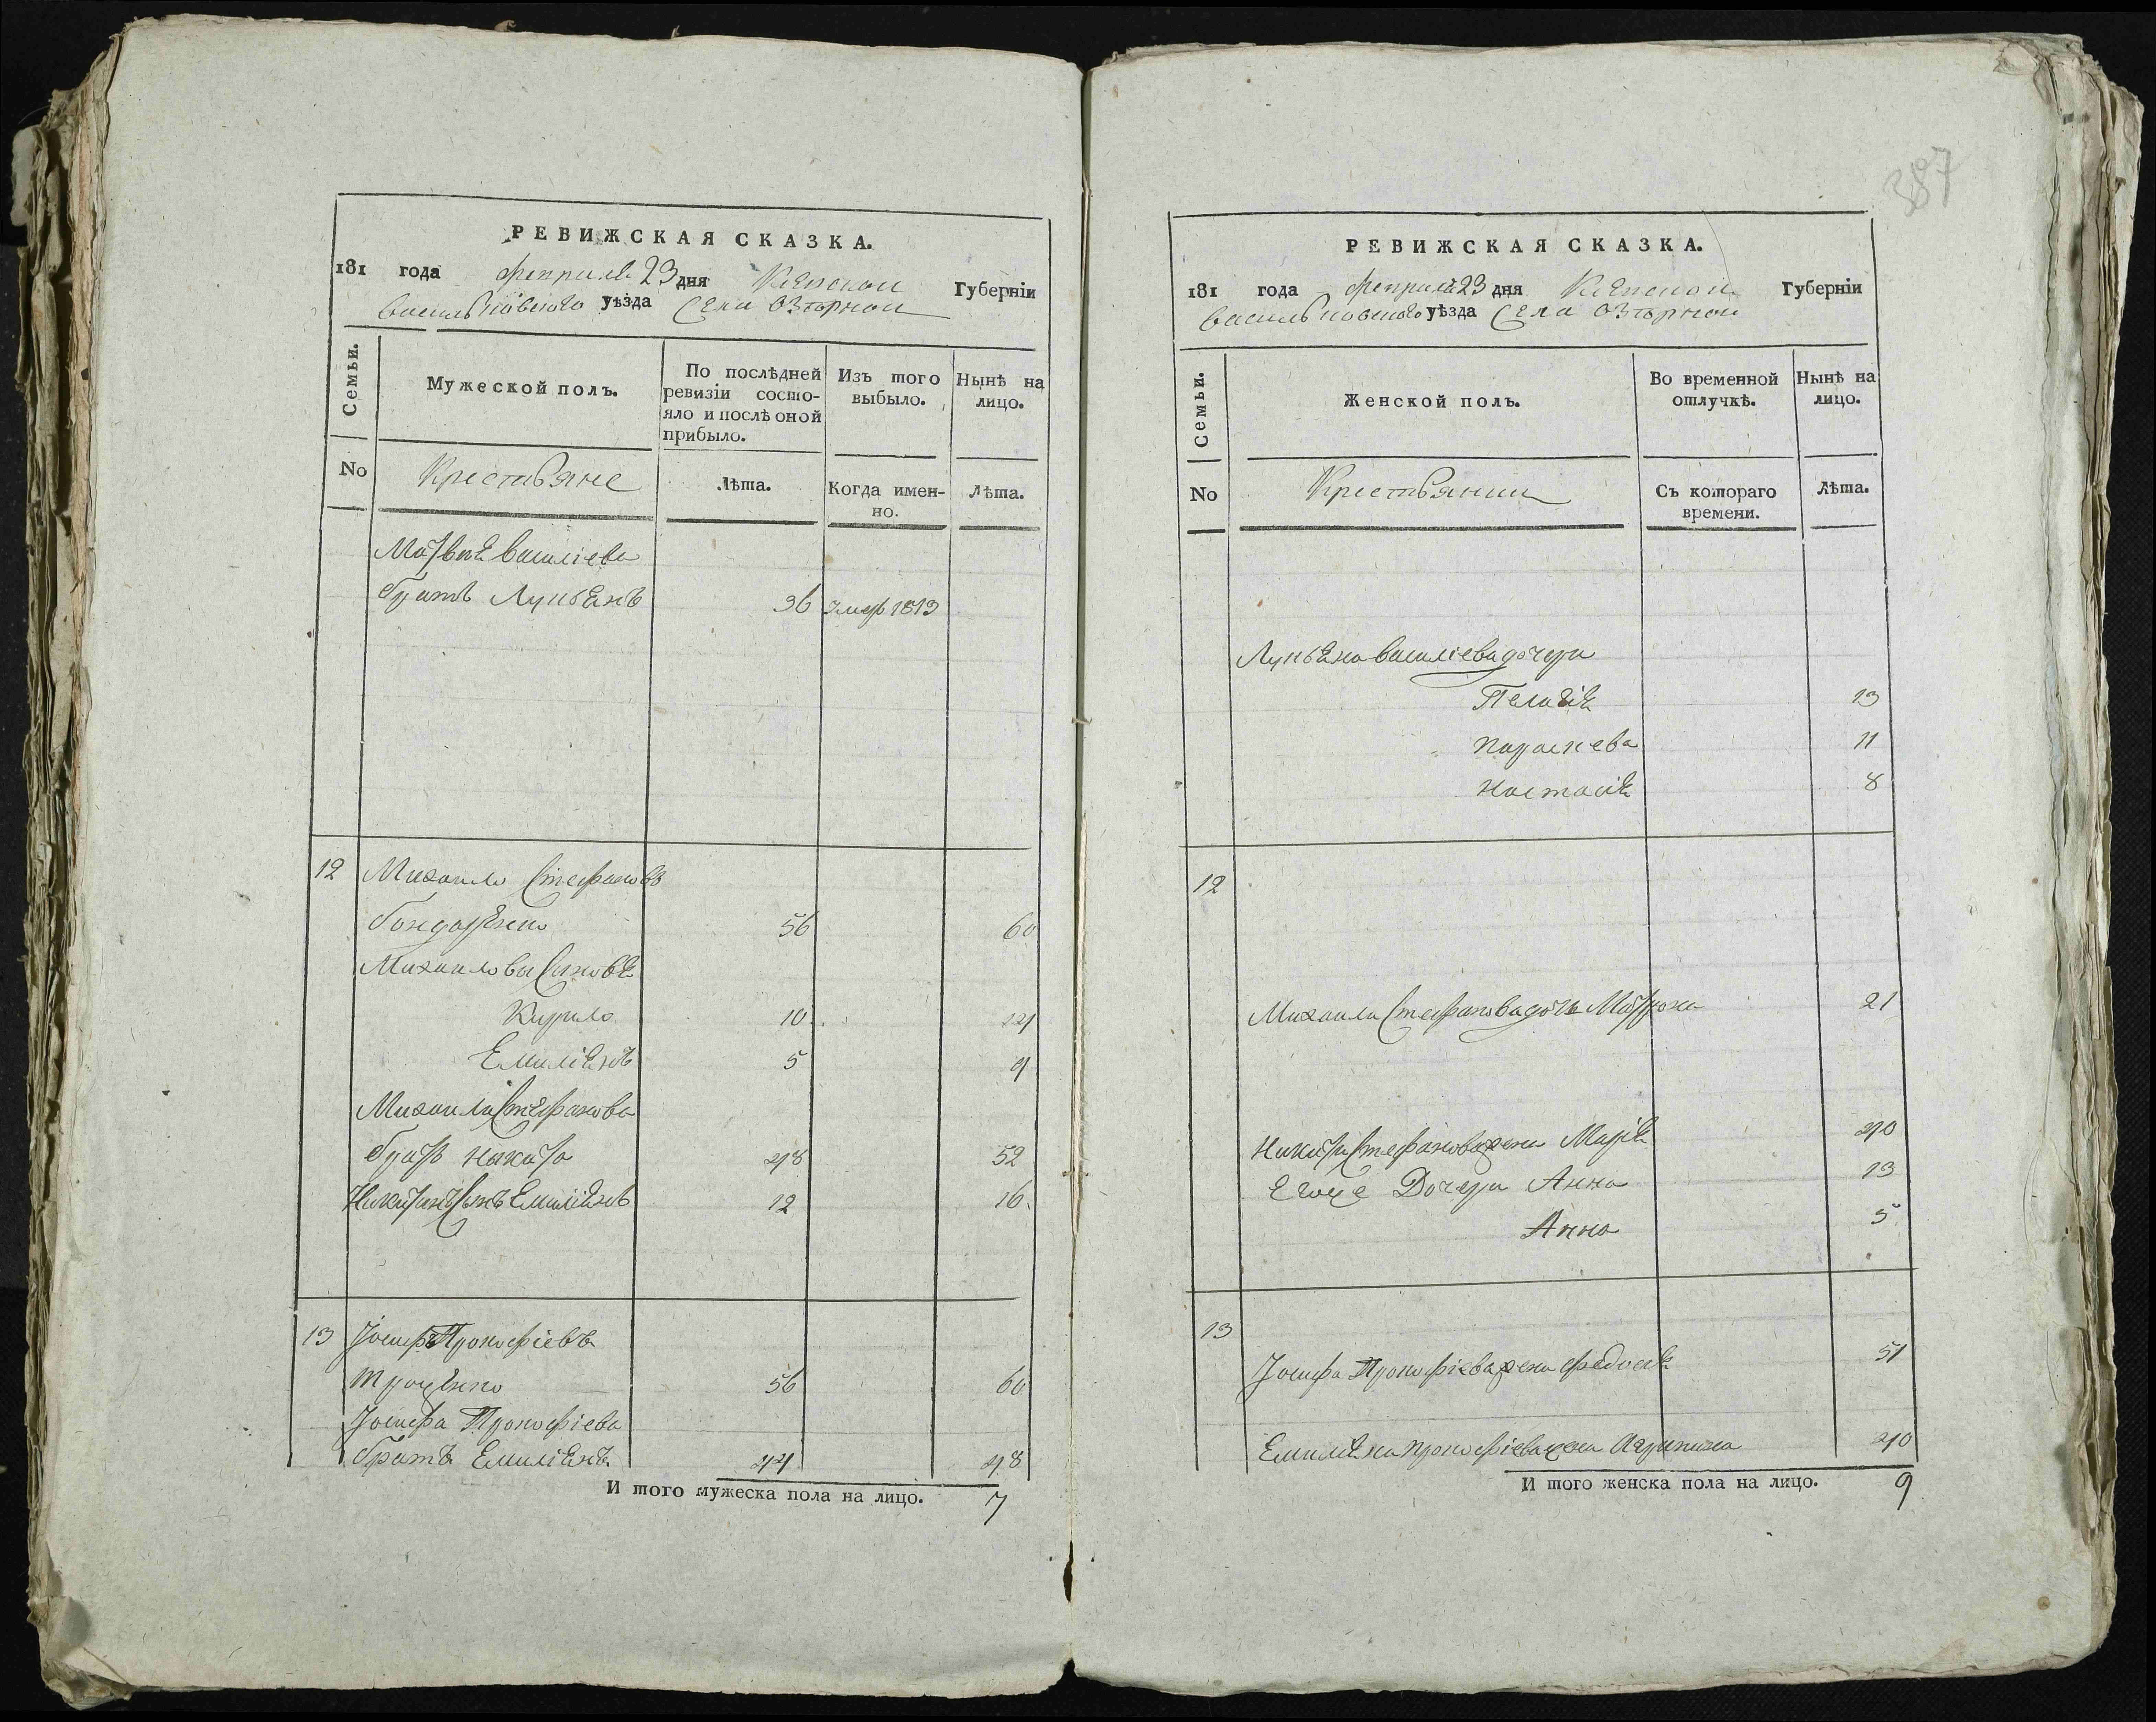 РЕВИЖСКАЯ СКАЗКА.
181 года 23 дня Киевской Губерніи
Васильковского уѣзда Села Озѣрной
Семьи.
Мужеской полъ.
По послѣдней ревизіи состо-
яло и послѣ оной
прибыло.
Изъ того
выбыло.
Нынѣ на
лицо.
No
Крестьяне
Лѣта.
Когда имен-
но.
Лѣта.
Матвѣя Василіева
братъ Лукьянъ 36 умеръ 1813
12 Михаило Стефановъ
Бондаренко 56 60
Михаилова Сыновья
Кирило 10
Емиліянъ 5 9
Михаила Стефанова
братъ Никита 48 52
Никитинъ Сынъ Емиліянъ 12 16.
13 Іосифъ Прокофіевъ
Троценко 56 60
Іосифа Прокофіева
братъ Емиліянъ 44 48
И того мужеска пола на лицо. 7
387
РЕВИЖСКАЯ СКАЗКА.
181 года 23 дня Киевской Губерніи
Васильковского уѣзда Села Озѣрной
Семьи.
Женской полъ.
Во временной
отлучкѣ.
Нынѣ на
лицо.
No
Крестьянки
Съ котораго
времени.
Лѣта.
Лукьяна Василіева дочери
Пелагія 13
Параскева 11
Настасія 8
12
Михаила Стефанова дочь Матрона 21
Никиты Стефанова жена Марія 40
Егоже Дочери Анна 13
Анна 5
13
Іосифа Прокофіева жена Федосія 51
Емиліяна Прокофіева жена Агрипина 40
И того женска пола на лицо. 9